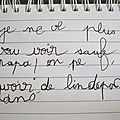 je ne ve plus
vou voir sauf
papa! on pe
avoir de lindepa
dans